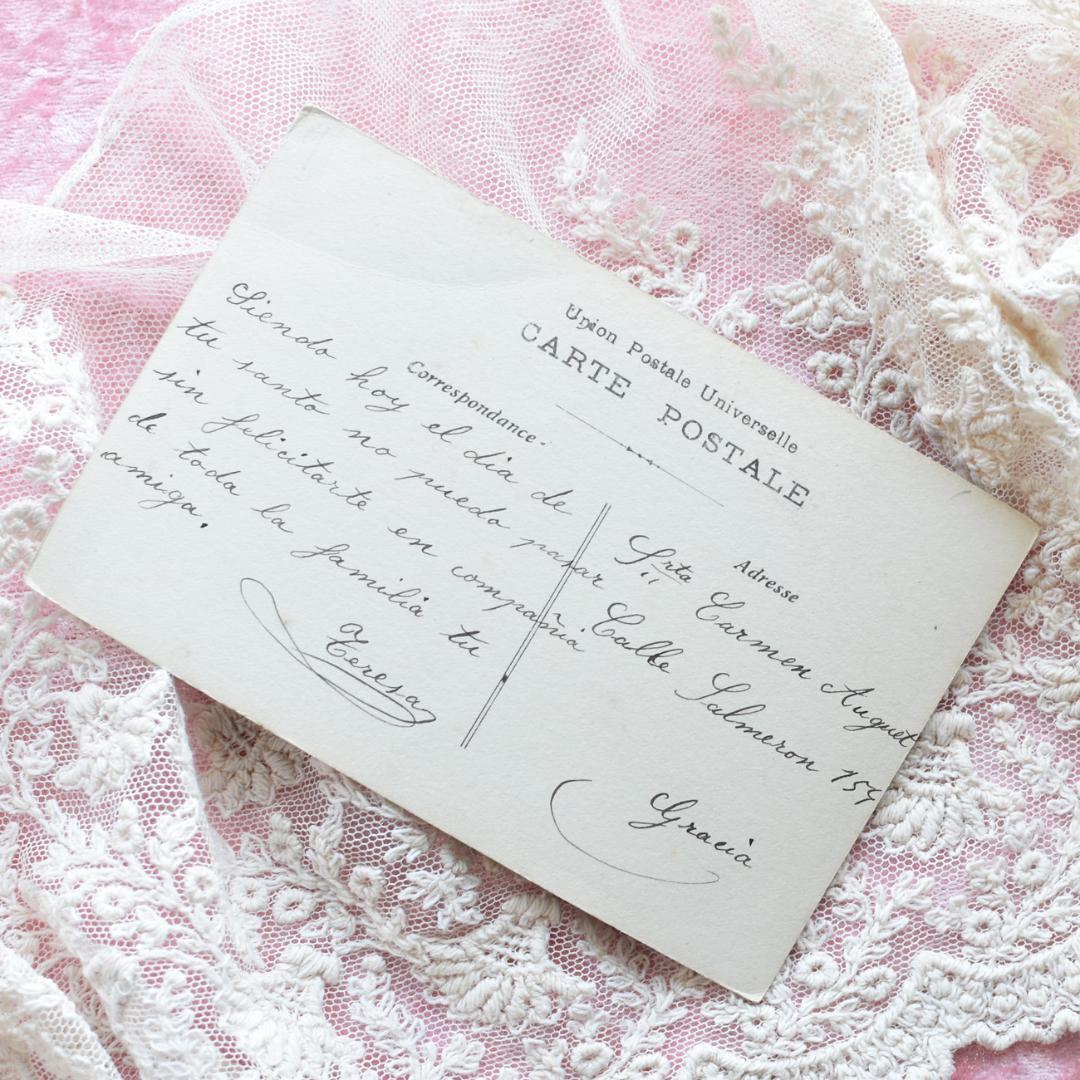 Union Postale Universelle
CARTE POSTALE
Correspondance.
Siendo hoy el dia de
tu santo no puedo pasar
sin felicitarte en compañia
de toda la familia tu
amiga.
Teresa
Adresse
Srta Carmen Auguet
Calle Salmeron 159
Gracia